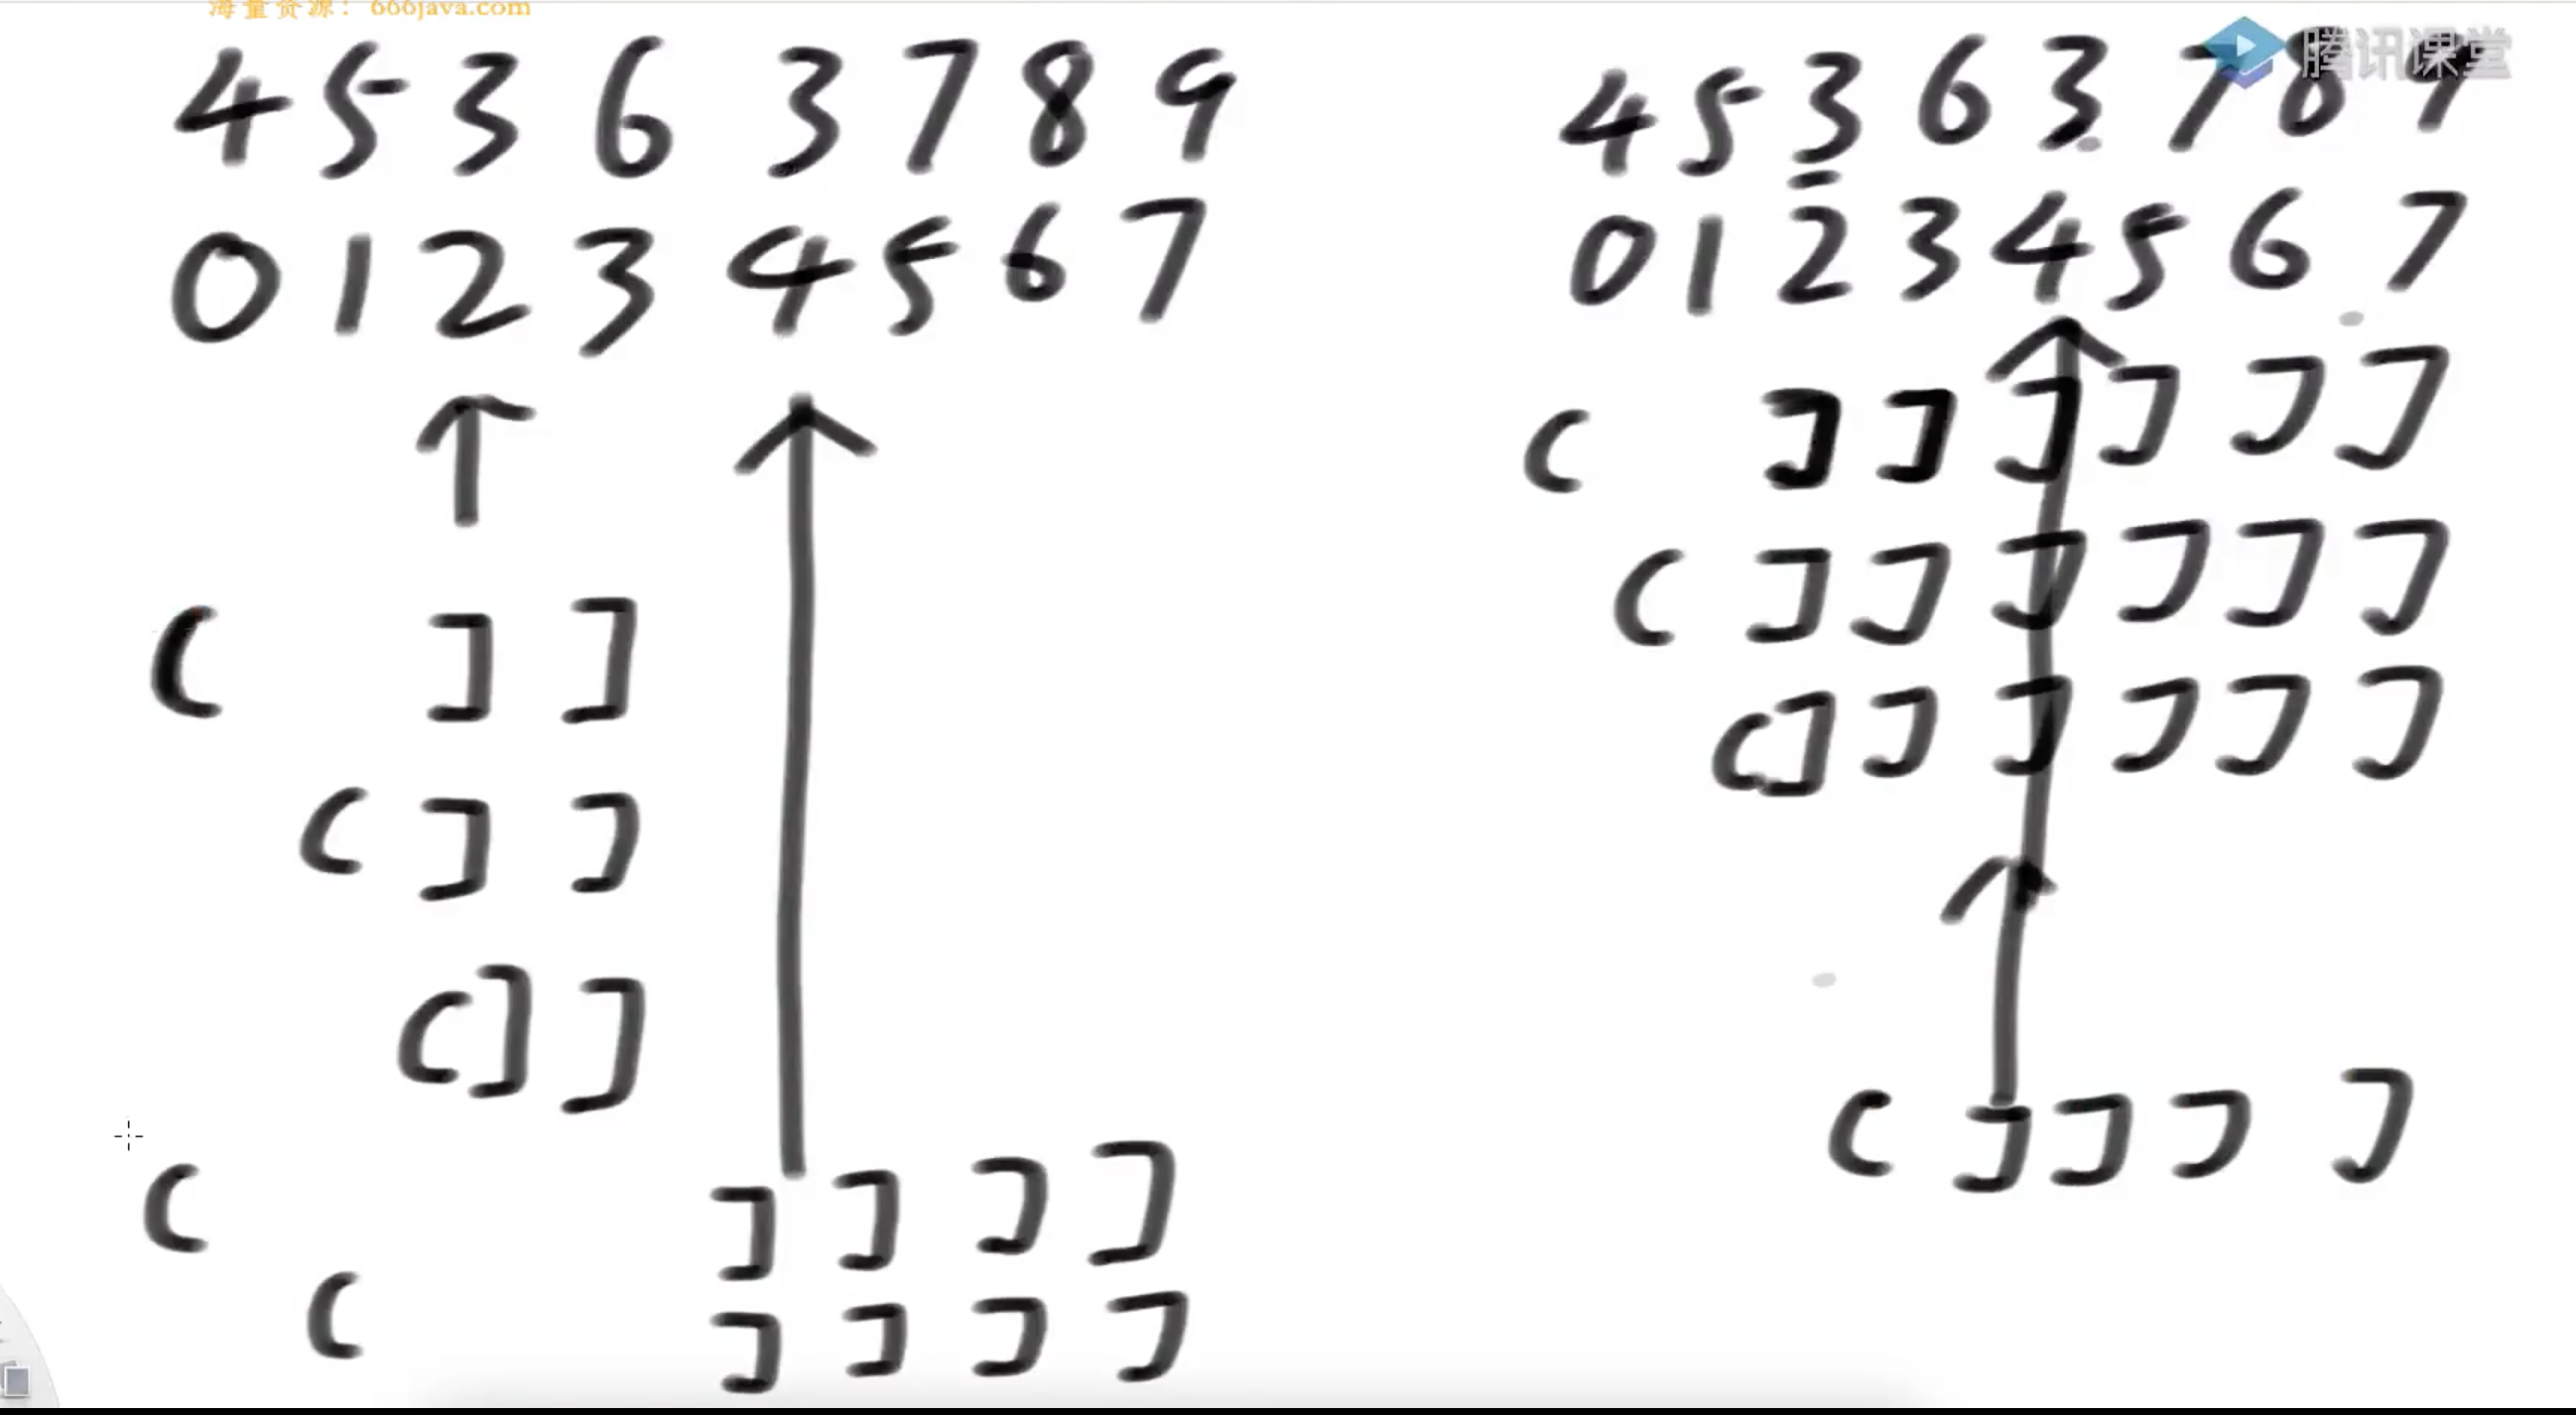 海量资源：666java.com
腾讯课堂
4 5 3 6 3 7 8 9
0 1 2 3 4 5 6 7
( ] ]
( ] ]
( ] ]
( ] ] ] ]
( ] ] ] ]
4 5 3 6 3 7 8 9
0 1 2 3 4 5 6 7
( ] ] ] ] ] ]
( ] ] ] ] ] ]
( ] ] ] ] ] ]
( ] ] ] ]